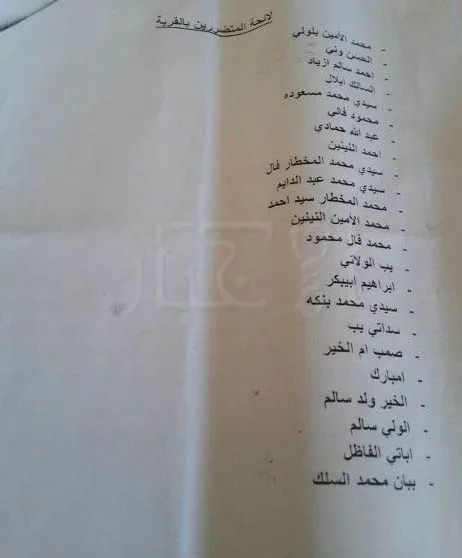 لائحة المتضررين بالقرية
- محمد الأمين بلولي
- الحسن وني
- احمد سالم ازياد
- السالك ابلال
- سيدي محمد مسعوده
- محمود فالي
- عبد الله حمادي
- احمد النينين
- سيدي محمد المخطار فال
- سيدي محمد عبد الدايم
- محمد المخطار سيد احمد
- محمد الأمين النينين
- محمد فال محمود
- يب الولاتي
- ابراهيم ابيبكر
- سيدي محمد بنكه
- سداتي يب
- صمب ام الخير
- امبارك
- الخير ولد سالم
- الولي سالم
- اباتي الفاظل
- ببان محمد السلك